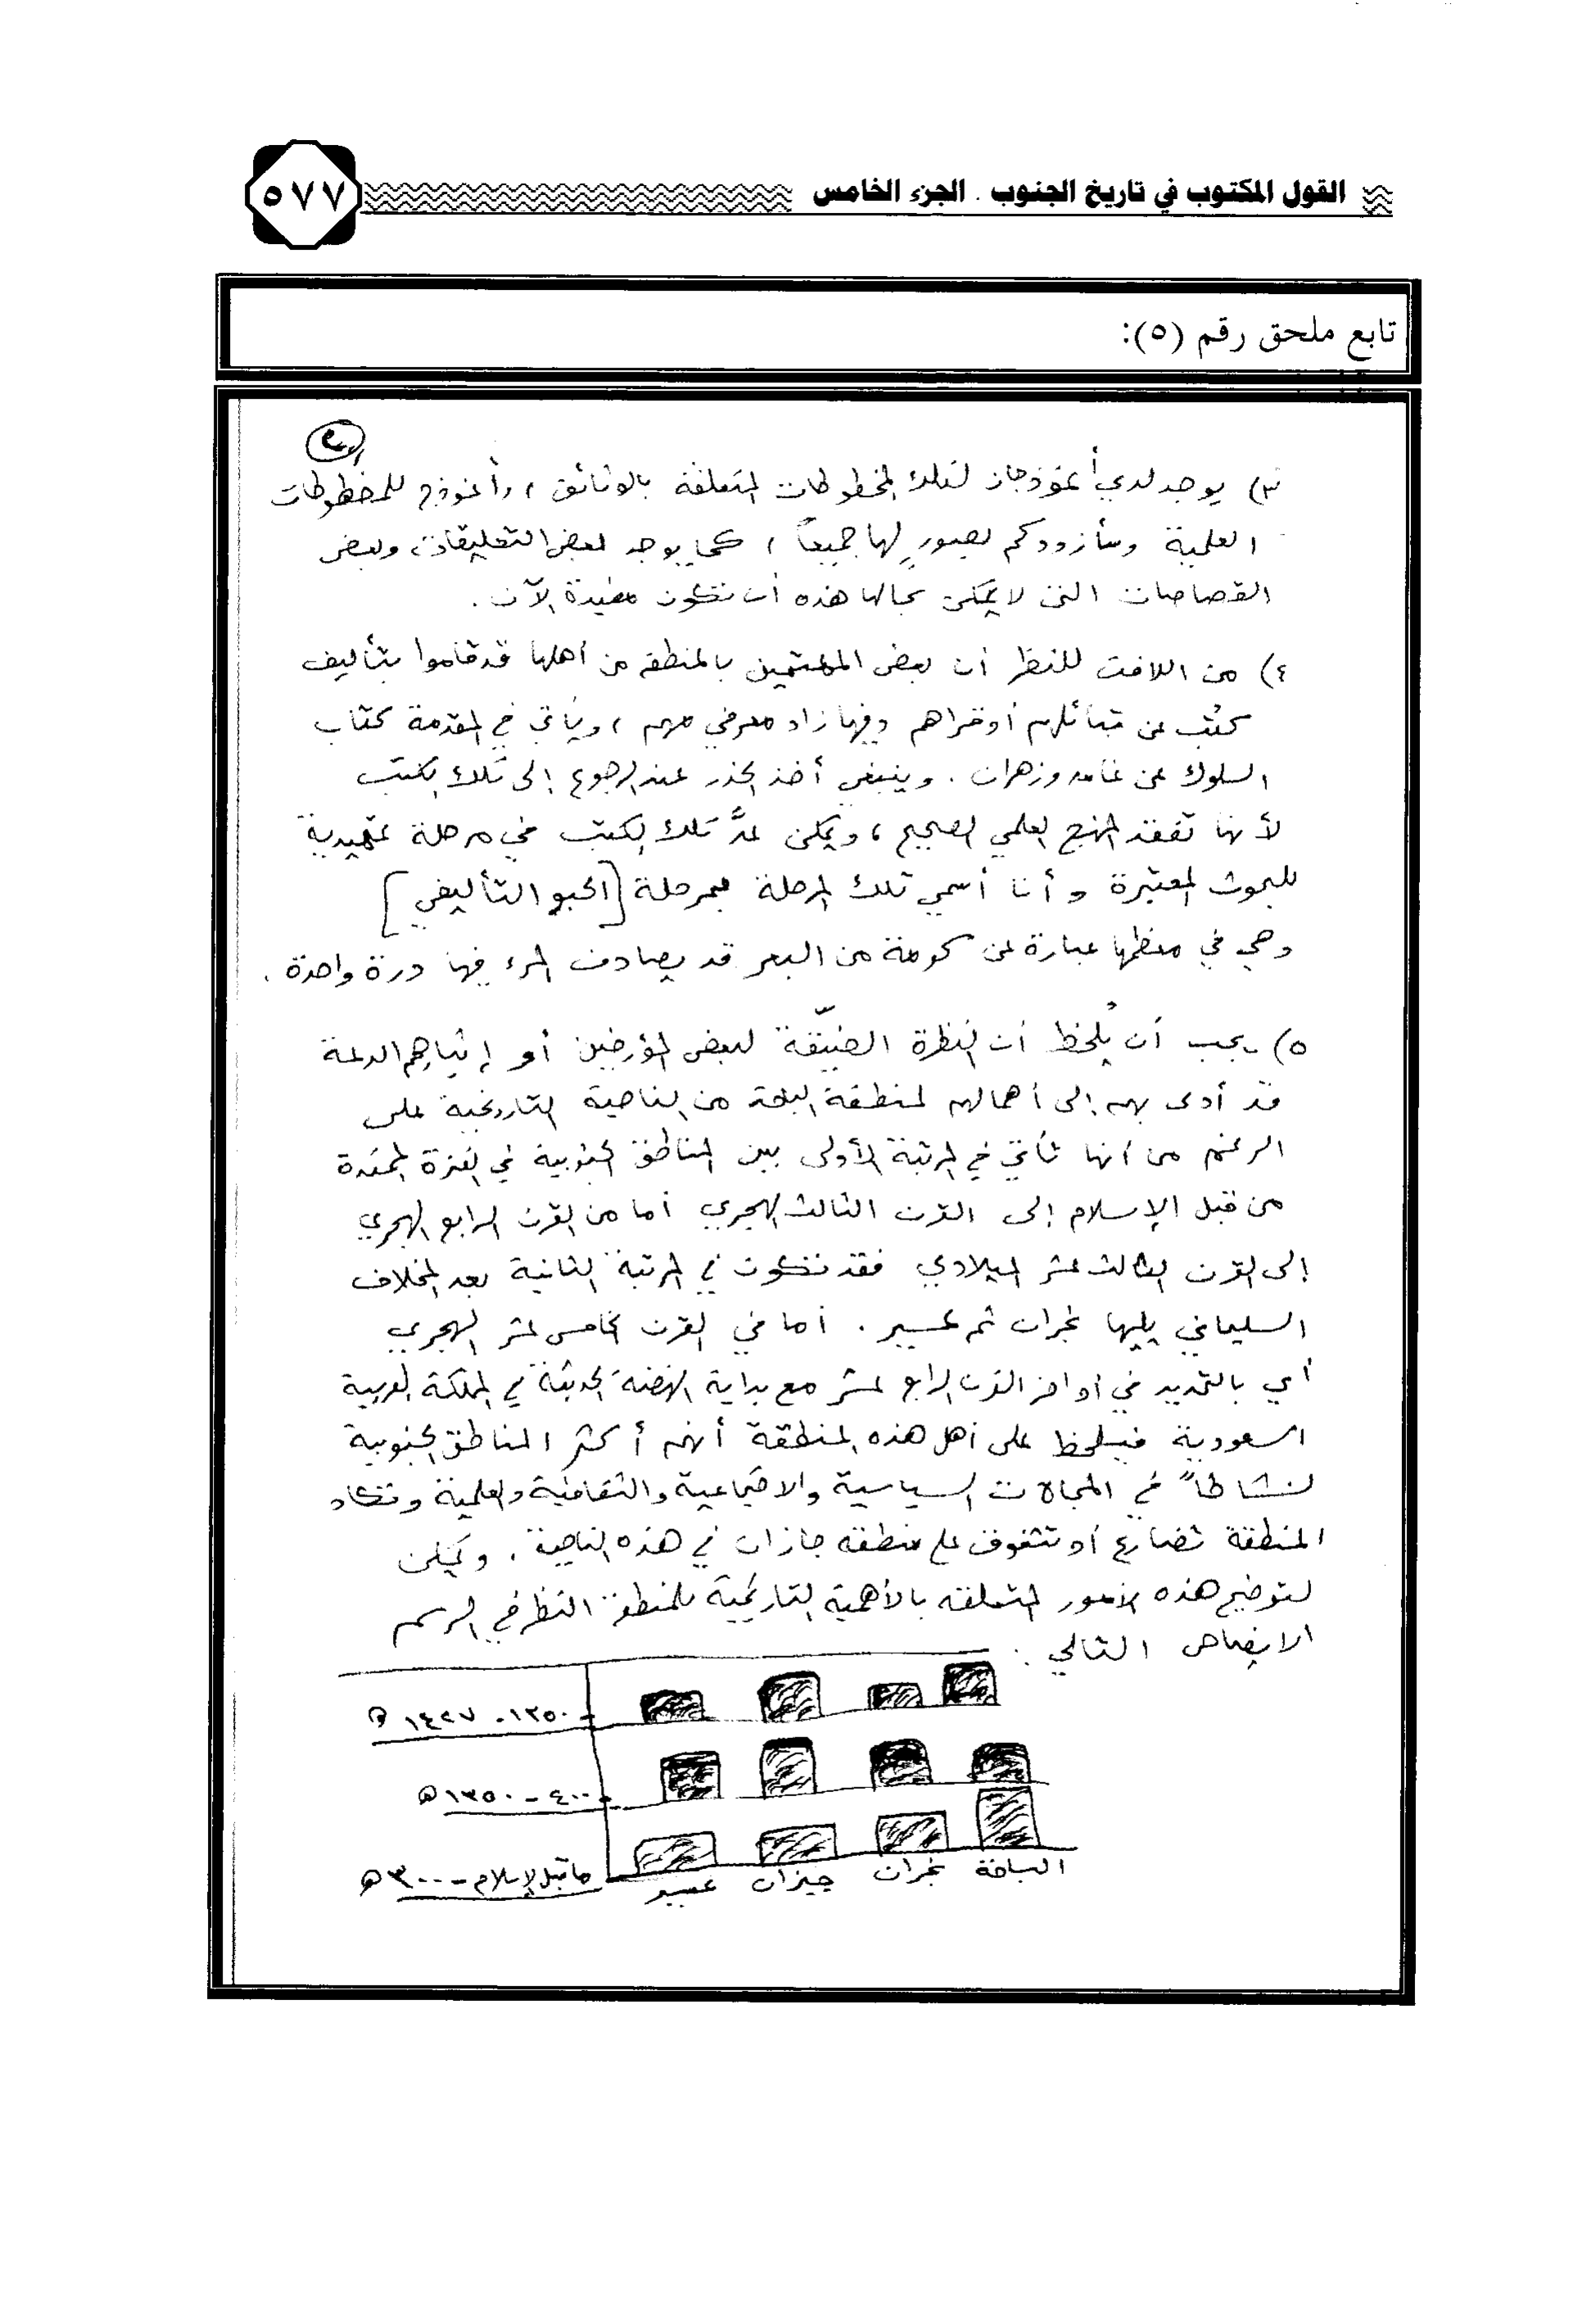 القول المكتوب في تاريخ الجنوب . الجزء الخامس
٥٧٧
تابع ملحق رقم (٥):
٣) يوجد لدي أنموذجان لتلك المخطوطات المتعلقة بالوثائق، وأنموذج للمخطوطات
العلمية وسأزودكم بصورٍ لها جميعاً، كما يوجد بعض التعليقات، وبعض
القصاصات التي لا يمكن بحالها هذه أن تكون مفيدة الآن.
٤) من اللافت للنظر أن بعض المهتمين بالمنطقة من أهلها قد قاموا بتأليف
كتُب عن قبائلهم أو قراهم وفيها زاد معرفي مهم، ويأتي في المقدمة كتاب
السلوك عن غامد وزهران. وينبغي أخذ الحذر عند الرجوع إلى تلك الكتب
لأنها تفقد المنهج العلمي الصحيح، ويمكن عدَّ تلك الكتب في مرحلة تمهيدية
للبحوث المعتبرة وأنا أسمي تلك المرحلة بمرحلة [الحبو التأليفي]
وهي في معظمها عبارة عن كومة من البعر قد يصادف المرء فيها درة واحدة.
٥) يجب أن يُلحظ أن النظرة الضيّقة لبعض المؤرخين أو
قد أدى بهم إلى أهمالهم لمنطقة الباحة من الناحية التاريخية على
الرغم من أنها تأتي في المرتبة الأولى بين المناطق الجنوبية في الفترة الممتدة
من قبل الإسلام إلى القرن الثالث الهجري أما من القرن الرابع الهجري
إلى القرن الثالث عشر الميلادي فقد تكون في المرتبة الثانية بعد المخلاف
السليماني يليها نجران ثم عسير. أما في القرن الخامس عشر الهجري
أي بالتحديد في أواخر القرن الرابع عشر مع بداية النهضة الحديثة في المملكة العربية
السعودية فيلحظ على أهل هذه المنطقة أنهم أكثر المناطق الجنوبية
نشاطاً في المجالات السياسية والاجتماعية والثقافية والعلمية وتكاد
المنطقة تضارع أو تتفوق على منطقة جازان في هذه الناحية. ويمكن
لتوضيح هذه الأمور المتعلقة بالأهمية التاريخية للمنطقة النظر في الرسم
الايضاحي التالي:
١٣٥٠ - ١٤٢٧ هـ
٤٠٠ - ١٣٥٠ هـ
ما قبل الإسلام - ٣٠٠ هـ
الباحة نجران جيزان عسير